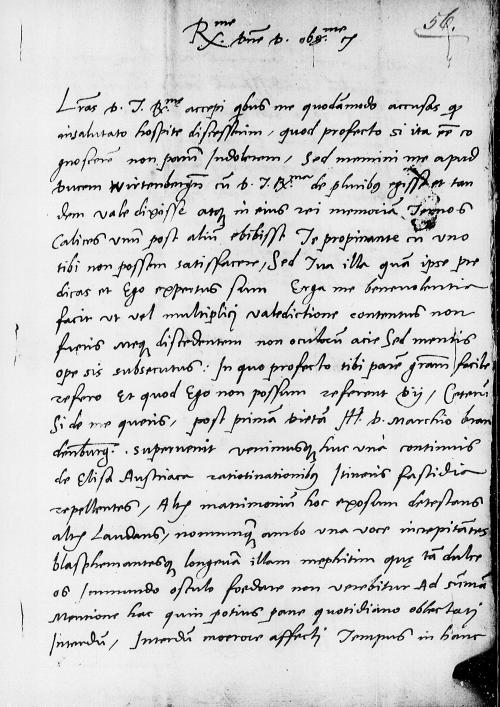 R.me d.ne d. obs.me etc
56.
L͞ras d. T. R.me accepi q͞bus me quodāmodo accusas qͻ
insalutato hospite discesserim, quod profecto si ita e͞e co
gnoscerem non parū Indolerem, Sed memini me apud
Ducem Wirtenbergn͞ cū D. T. R.ma de pluribꝰ egisse et tan
dem vale dixisse atqꝫ in eius rei memoriā Ternos
Calices vnū post aliū ebibisse Te propinante cū vno
tibi non possem satisfacere, Sed Tua illa quā ipse pre
dicas et Ego expertus sum Erga me beneuolentia
facit vt vel multiplici valedictione contentus non
fueris Meqꝫ discedentem non oculorū acie Sed mentis
ope sis subsecutus: In quo profecto tibi parē gr͞am facile
refero Et quod Ego non possum referent Dij, Ceterū
Si de me queris, post primā dietā Ill. D. Marchio bran
denburg. superuenit venimusqꝫ huc vna continuis
de Elisa Austriaca ratiotinationibus Itineris fastidia
repellentes, Alter matrimoniū hoc exosum detestans
alter Laudans, nonnunqꝫ ambo vna voce increpitātes
blasphemantesqꝫ longeuā illam mephitim quę tā dulce
os Inmundo osculo foedare non verebitur Ad summā
Mentione hac quin potius pane quotidiano oblectati
Interdū, Interdū moerore affecti Tempus in hanc